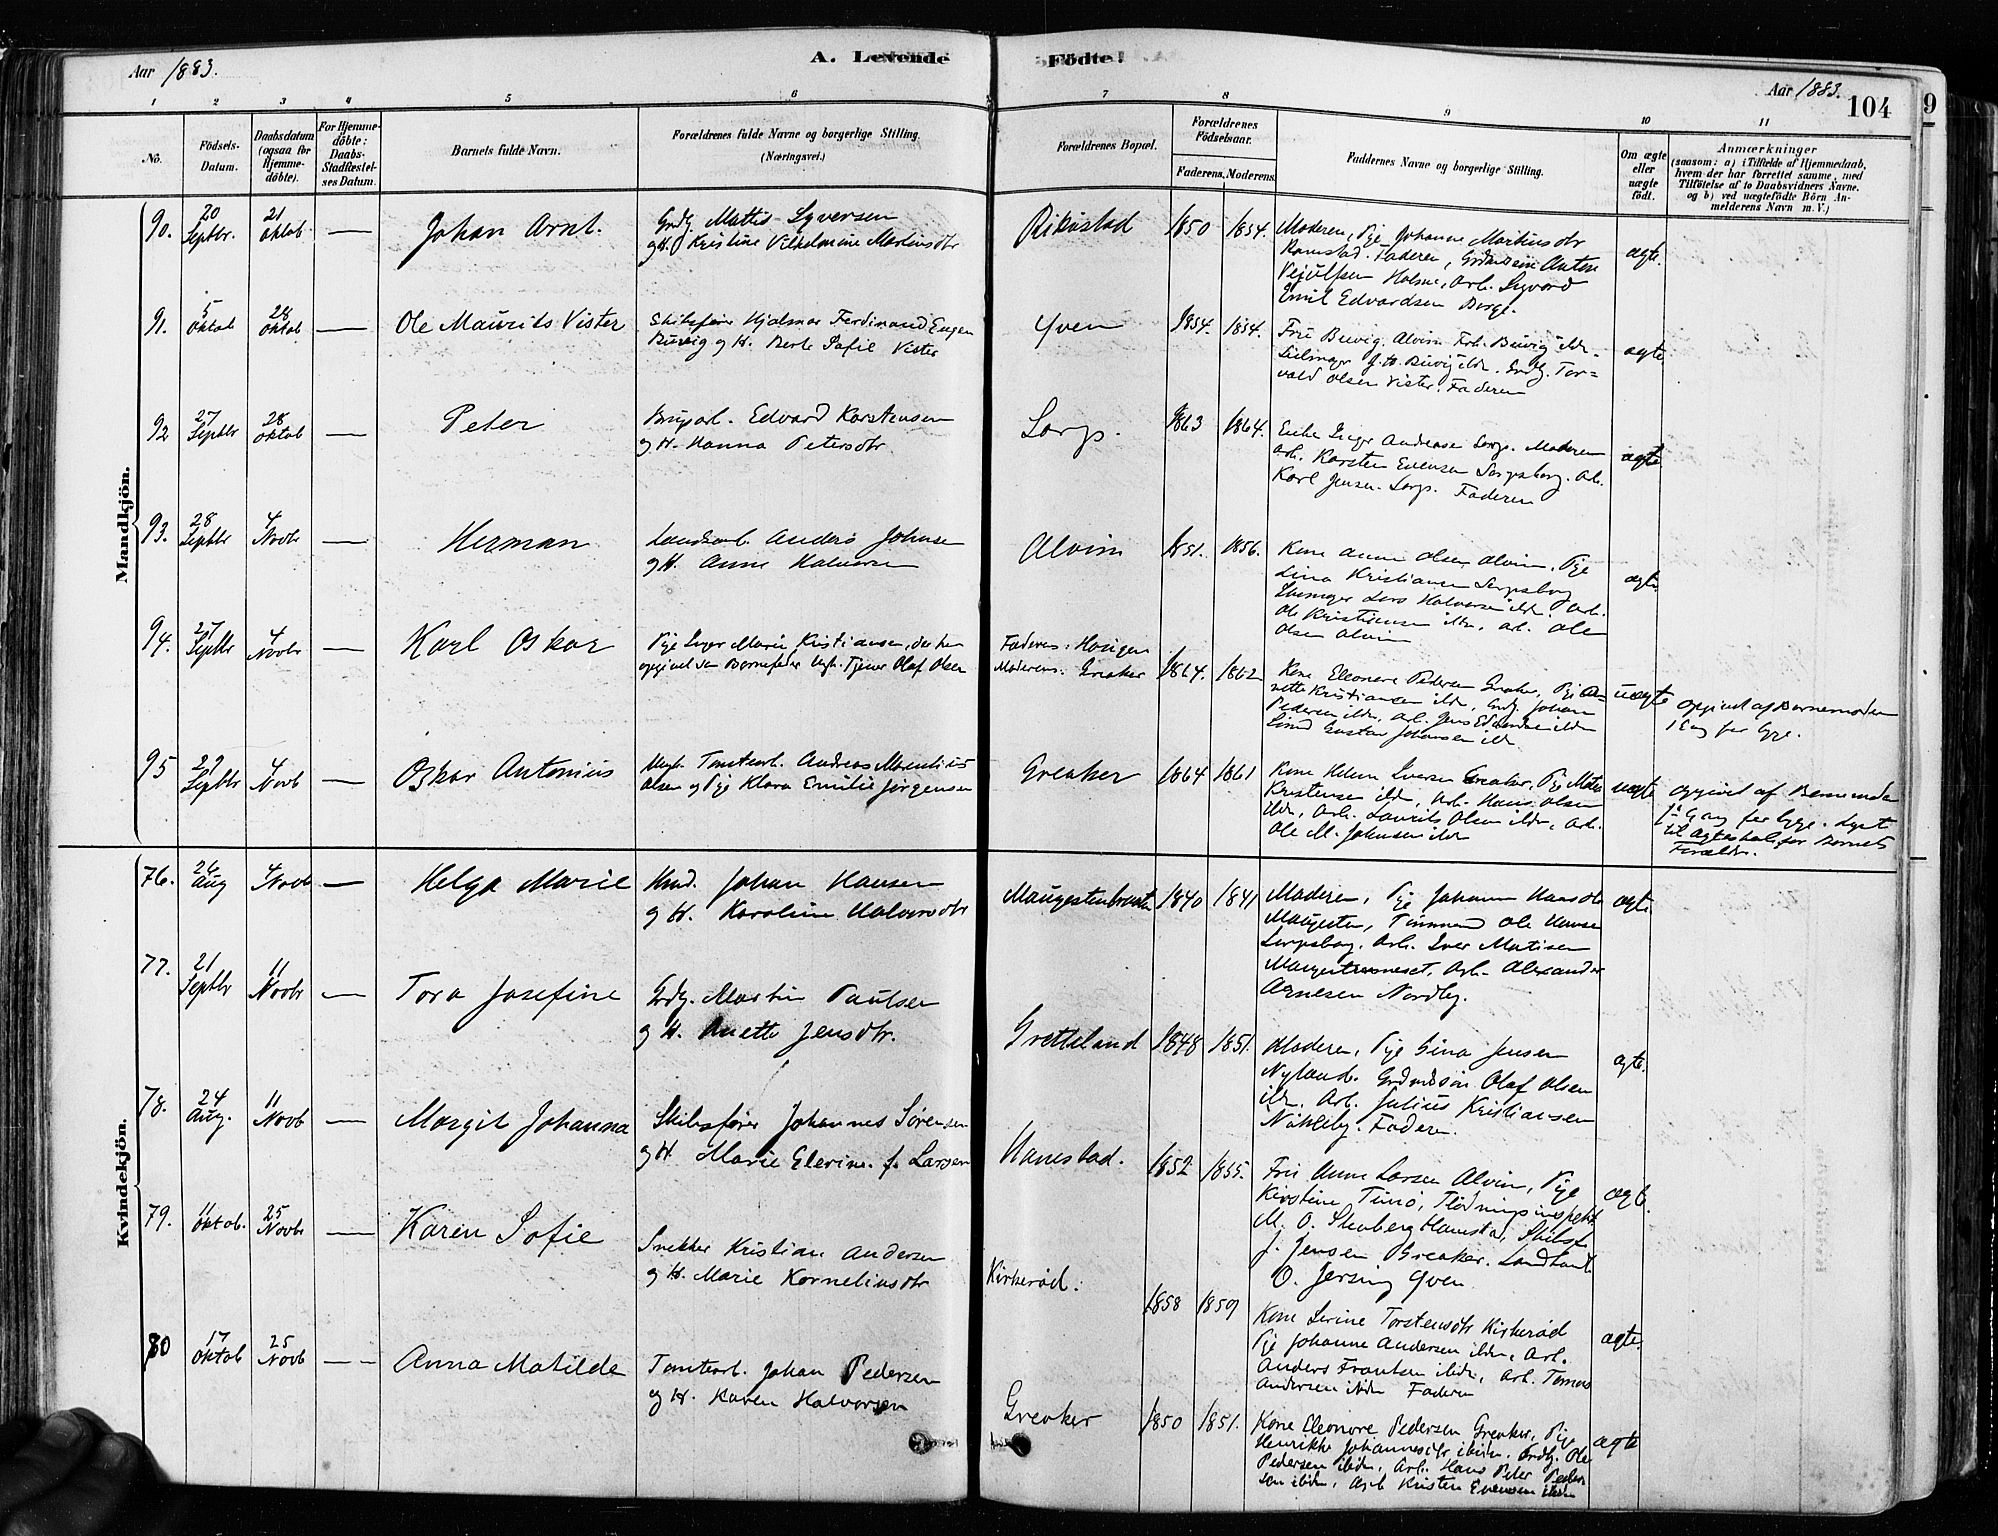 Aar 1883.
A. Levende
Födte.
Aar 1883.
104
9
1 2 3 4 5 6 7 8 9 10 11
No.
Födsels-
Datum.
Daabsdatum
(ogsaa for
Hjemme-
döbte).
For Hjemme-
döbte:
Daabs-
Stadfæstel-
ses Datum.
Barnets fulde Navn.
Forældrenes fulde Navne og borgerlige Stilling.
(Næringsvei.)
Forældrenes Bopæl.
Forældrenes
Födselsaar.
Faderens. Moderens.
Faddernes Navne og borgerlige Stilling.
Om ægte
eller
uægte
födt.
Anmærkninger
(saasom: a) i Tilfælde af Hjemmedaab,
hvem der har forrettet samme, med
Tilföielse af to Daabsvidners Navne.
og b) ved uægtefödte Börn An-
melderens Navn m. V.)
Mandkjön.
90.
20
Septbr.
21
Oktob.
Johan Arnt.
Grdg. Mattis Syversen
og H. Kristine Vilhelmine Martinsdtr
1850
1854.
Moderen, Pige Johanne Martinsdtr
Ramstad. Faderen, Grdmdssøn Anton
Holme, Arb. Sigvard
Emil Edvardsen Borge.
ægte.
91.
5
Oktob
28
Oktob
—
Ole Maurits Vister
Skibsfører Hjalmar Ferdinand Eugen
Buvig og H. Berte Sofie Vister
Yven
1854.
1854.
Fru Buvig Alvim Frk. Buvig ildr.
Grdg. Tor=
vald Olsen Vister. Faderen
ægte
92
27
Septbr
28
Oktob
—
Peter
Edvard Karstensen
og H. Hanna Petersdtr.
Sarp.
1863
1864.
Enke Inger Andrease Sarp. Moderen
Arb. Karsten Evensen Sarpsborg. Arb.
Karl Jensen Sarp. Faderen
ægte
93.
28
Septbr
4
Novbr
—
Herman
Landarb. Anders Johnsen
og H. Anne Halvorsen
Alvim
1851.
1856.
Kone Anne Olsen Alvim, Pige
Lina Kristiansen Sarpsborg
Lars Halvorsen ildr, Arb.
Ole Kristiansen ildr, Arb. Ole
Olsen Alvim
ægte
94.
27
Septbr
4
Novbr
—
Karl Oskar
Pige Inger Marie Kristiansen, der har
opgivet som Barnefader Ungk. Tjener Olaf Olsen
Faderens: Haugen
Moderens: Greaker
1864.
1862
Kone Eleonore Pedersen Greaker, Pige An-
nette Kristiansen ildr, Grdg. Johan
Pedersen ildr, Arb. Jens Edvardsen ildr
Gustav Johansen ildr
uægte
Opgivet af Barnemoderen
1 Gang før Lyse.
95
29
Septbr
4
Novb
—
Oskar Antonius
Ungk. Tomtearb. Andreas Maurentius
Olsen og Pige Klara Emilie Jørgensen
Greaker
1864
1861
Kone Helene Iversen Greaker, Pige Mate
Kristensen ildr, Arb. Hans Olsen
ildr, Arb. Laurits Olsen ildr, Arb.
Ole M. Johnsen ildr
uægte
Opgivet af Barnemoder
1ste Gang før Lyse. Lyst
til Ægteskab for Barnets
Forældre.
Kvindekjön.
76.
26
Aug
4
Novb
—
Helga Marie
Husmd. Johan Hansen
og H. Karoline Halvorsdtr
1840
1841
Moderen, Pige Johanne Hansdtr
Maugesten, Tømmermd Ole Hansen
Sarpsborg, Arb. Iver Matisen
Arb. Alexander
Arnesen Nordby.
ægte.
77.
21
Septbr
11
Novbr
—
Tora Josefine
Grdg. Martin Paulsen
og H. Anette Jensdtr.
Gretteland
1848
1851.
Moderen, Pige Gina Jensen
Nyland. Grdmdssøn Olaf Olsen
ildr. Arb. Julius Kristiansen
Nikleby. Faderen.
ægte.
78.
24
Aug.
11
Novb
—
Margit Johanna
Skibsfører Johannes Sørensen
og H. Marie Elerine f. Larsen
Hanestad.
1852
1855.
Fru Anne Larsen Alvim, Pige
Kirstine Tunø, Flødningsinspekt
M. O. Stenberg Hanestad, Skibsf
J. Jensen Greaker. Landhandl
O. Jersing Yven
ægte.
79.
11
Oktob.
25
Novbr
—
Karen Sofie
Snekker Kristian Andersen
og H. Marie Korneliusdtr
Kirkerød.
1858
1859
Kone Serine Torstensdtr Kirkerød
Pige Johanne Andersen ildr, Arb.
Anders Frantsen ibidr, Arb. Tomas
Andersen ibidr Faderen
ægte.
80
17
Oktob
25
Novb
—
Anna Matilde
Tomtearb. Johan Pedersen
og H. Karen Halvorsen
Greaker
1850
1851.
Kone Eleonore Pedersen Greaker, Pige
Henrikke Johannesdtr ibidr, Grdg. Ole
Pedersen ibidr, Arb. Hans Peter Peder-
sen ibidr, Arb Kristen Evensen ibidr
ægte